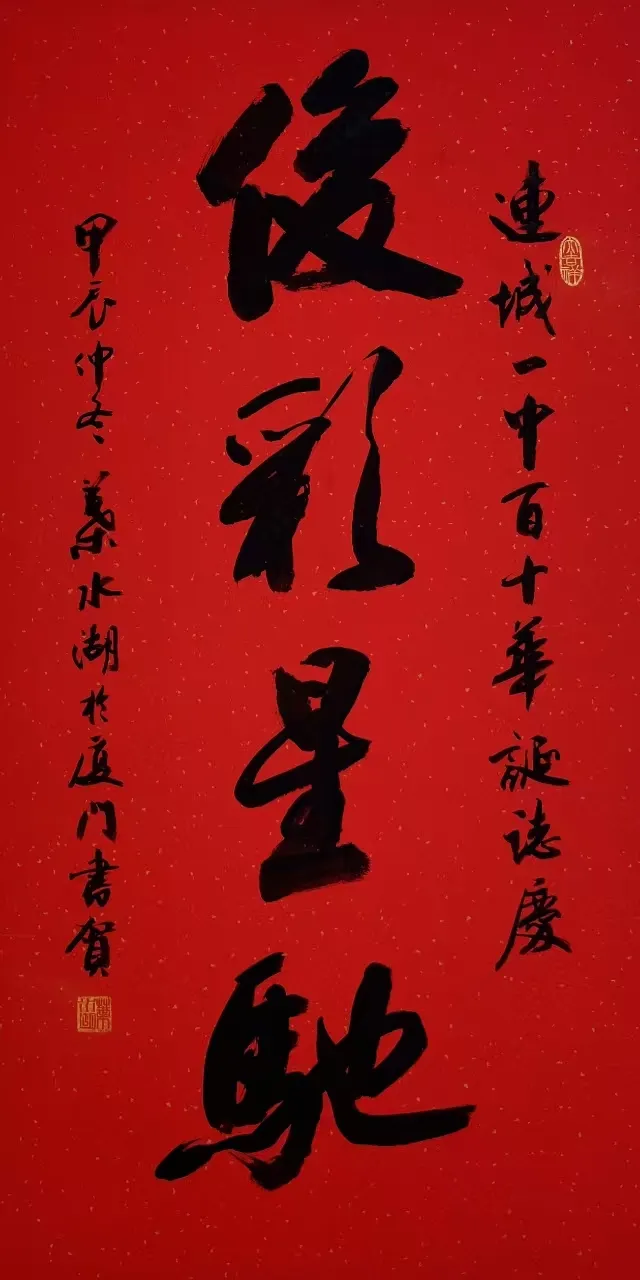 連城一中百十華誕誌慶
俊彩星馳
甲辰仲冬葉水湖於廈門書賀
大吉祥